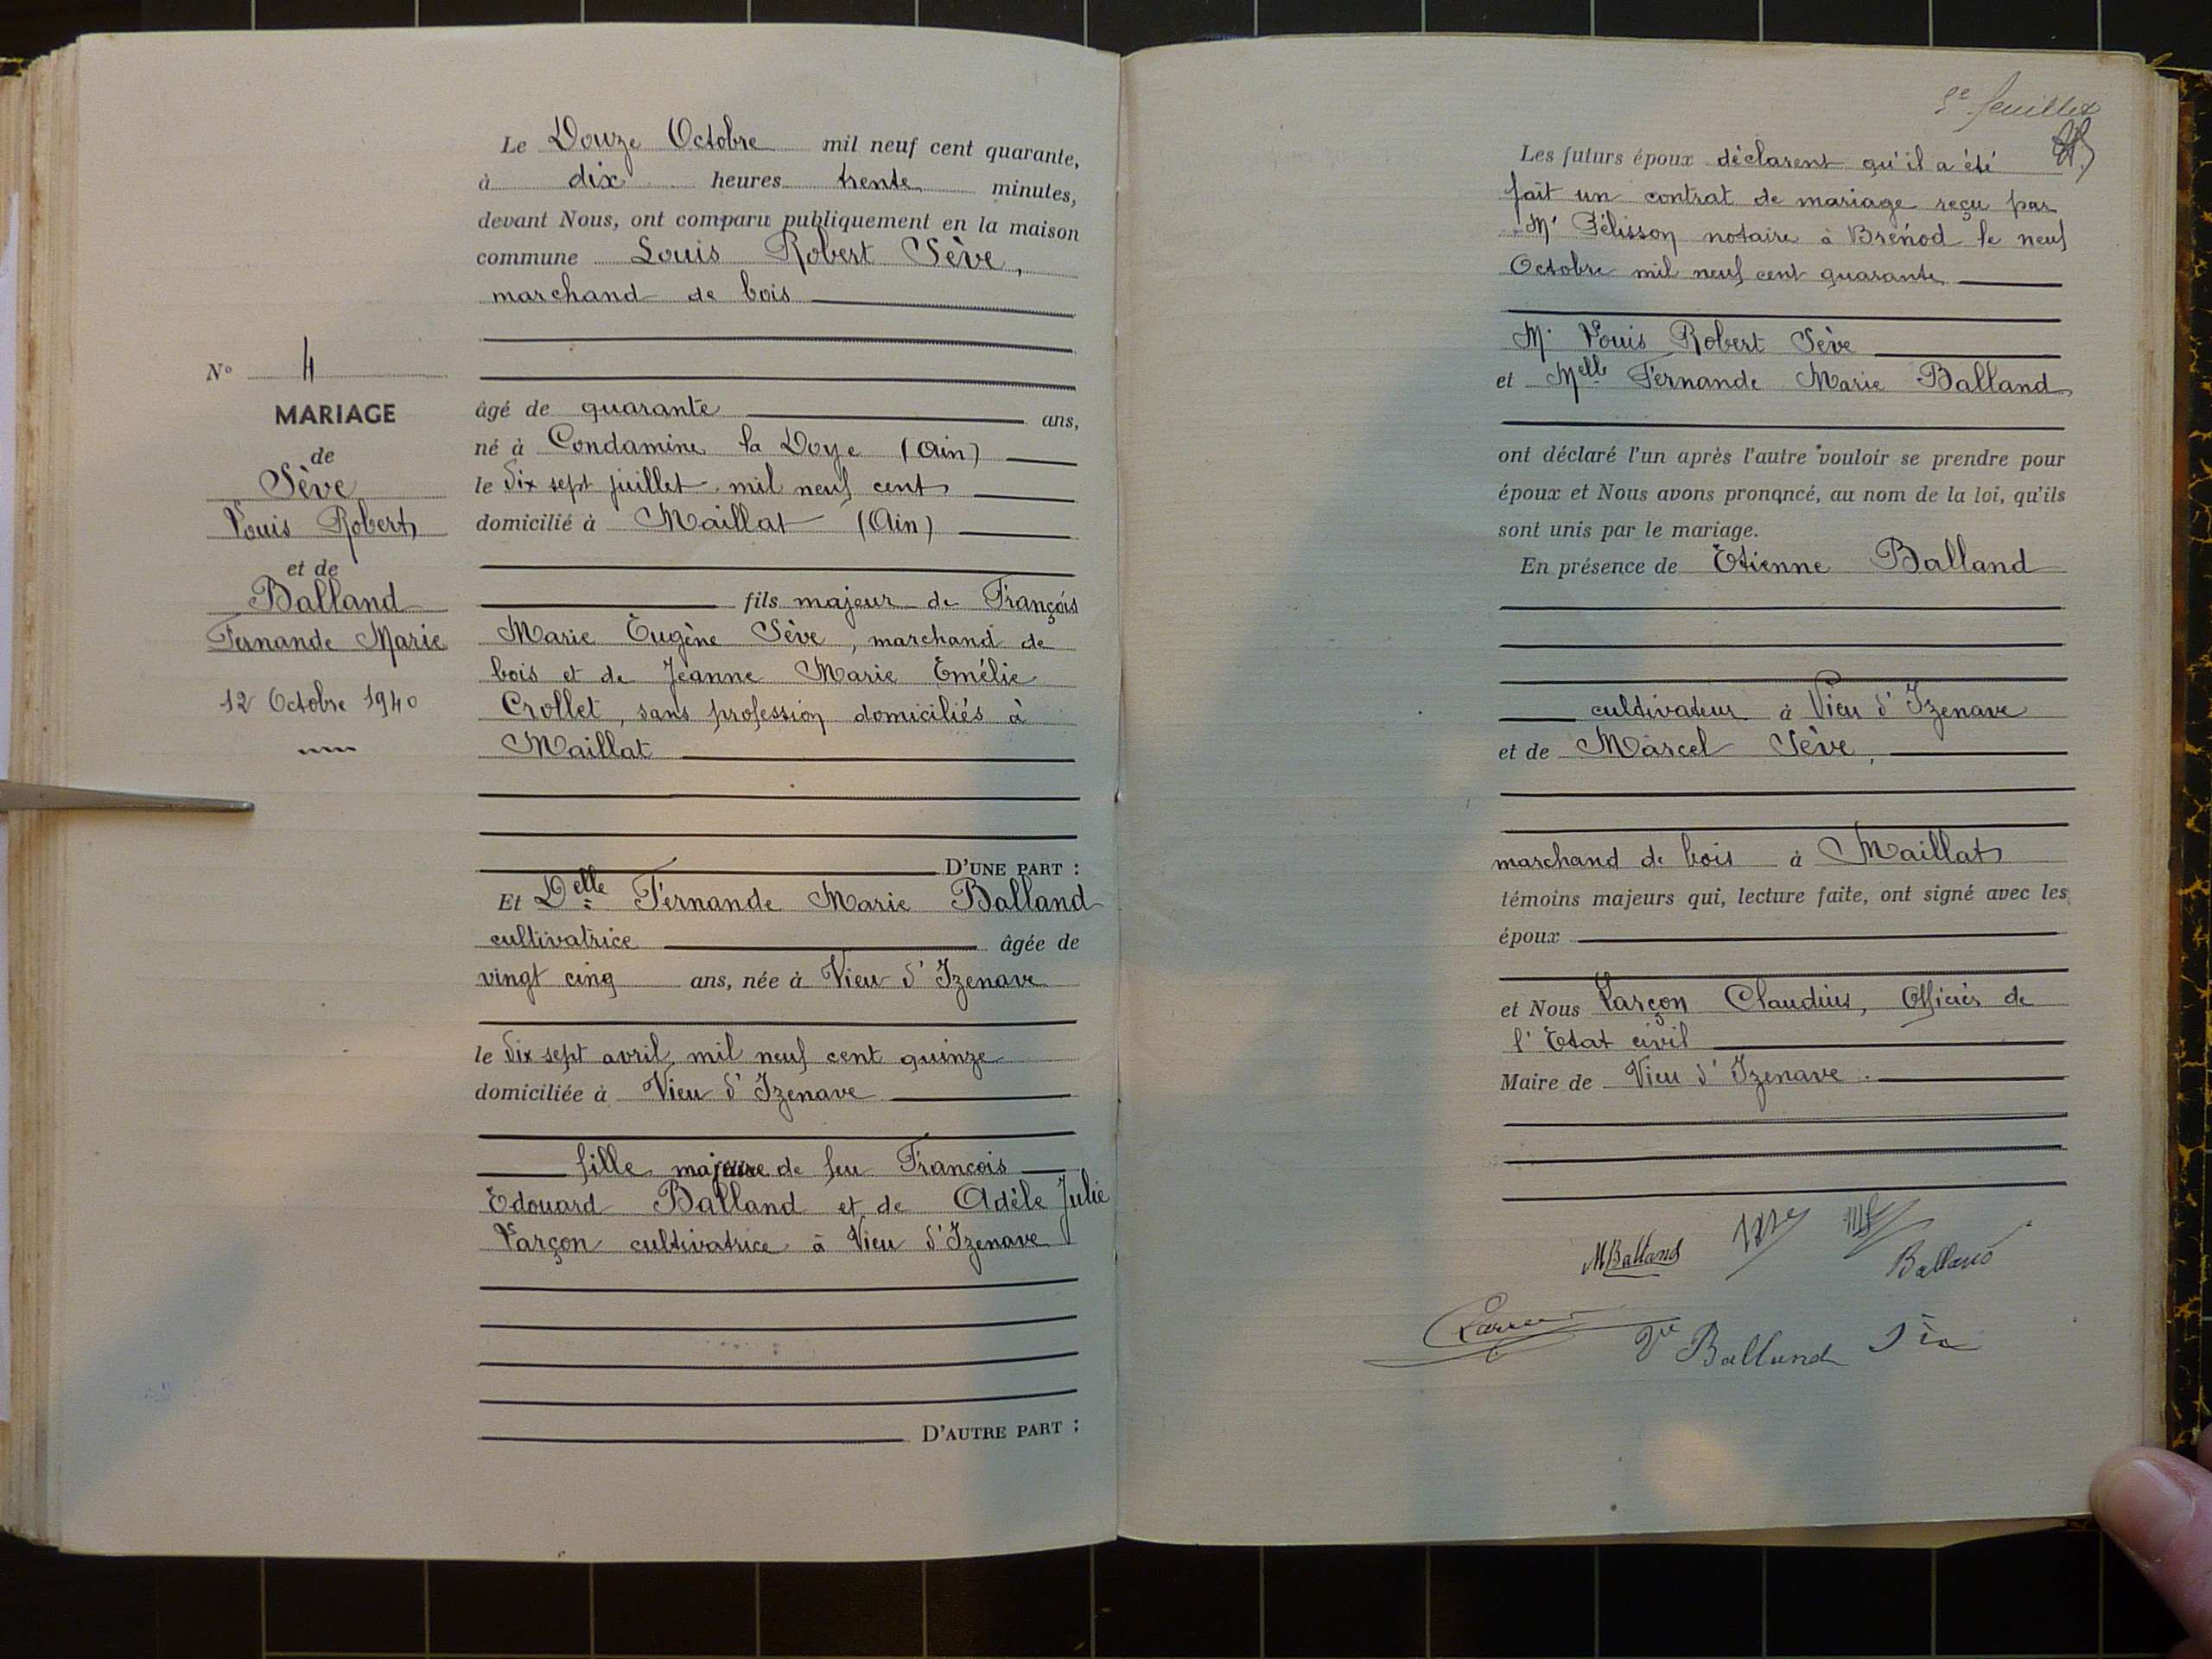 Le Douze Octobre mil neuf cent quarante,
à dix heures trente minutes,
devant Nous, ont comparu publiquement en la maison
commune Louis Robert Sève,
marchand de bois
N° 4
MARIAGE
de
Sève
Louis Robert
et de
Balland
Fernande Marie
12 Octobre 1940
âgé de quarante ans,
né à Condamine la Doye (Ain)
le dix sept juillet mil neuf cent
domicilié à Maillat (Ain)
fils majeur de François
Marie Eugène Sève, marchand de
bois et de Jeanne Marie Emélie
Crollet, sans profession domiciliés à
Maillat
D'UNE PART :
Et Delle Fernande Marie Balland
cultivatrice âgée de
vingt cinq ans, née à Vieu d'Izenave
le dix sept avril mil neuf cent quinze
domiciliée à Vieu d'Izenave
fille majeure de feu Francois
Edouard Balland et de Adèle Julie
Varçon cultivatrice à Vieu d'Izenave
D'AUTRE PART :
feuillet
Les futurs époux déclarent qu'il a été
fait un contrat de mariage reçu par
Me Pélisson notaire à Brénod le neuf
Octobre mil neuf cent quarante
M. Louis Robert Sève
et Melle Fernande Marie Balland
ont déclaré l'un après l'autre vouloir se prendre pour
époux et Nous avons prononcé, au nom de la loi, qu'ils
sont unis par le mariage.
En présence de Etienne Balland
cultivateur à Vieu d'Izenave
et de Marcel Sève,
marchand de bois à Maillat
témoins majeurs qui, lecture faite, ont signé avec les
époux
et Nous Varçon Claudius, Officier de
l'Etat civil
Maire de Vieu d'Izenave.
MBalland
Balland
Vve Balland